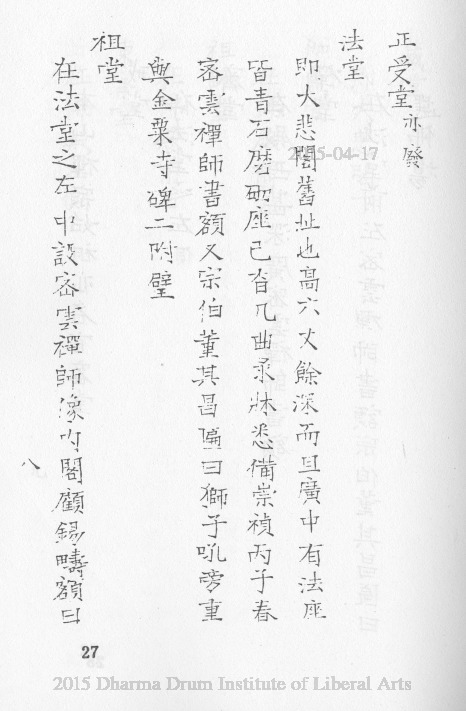 正受堂 亦廢
法堂
即大悲閣舊址也高六丈餘深而且廣中有法座
皆青石磨砌座己沓几曲彔牀悉備崇禎丙子春
密雲禪師書額又宗伯董其昌匾曰獅子吼旁重
與金粟寺碑二附壁
祖堂
在法堂之左中設密雲禪師像內閣顧錫疇額曰
八
27
2015-04-17
2015 Dharma Drum Institute of Liberal Arts